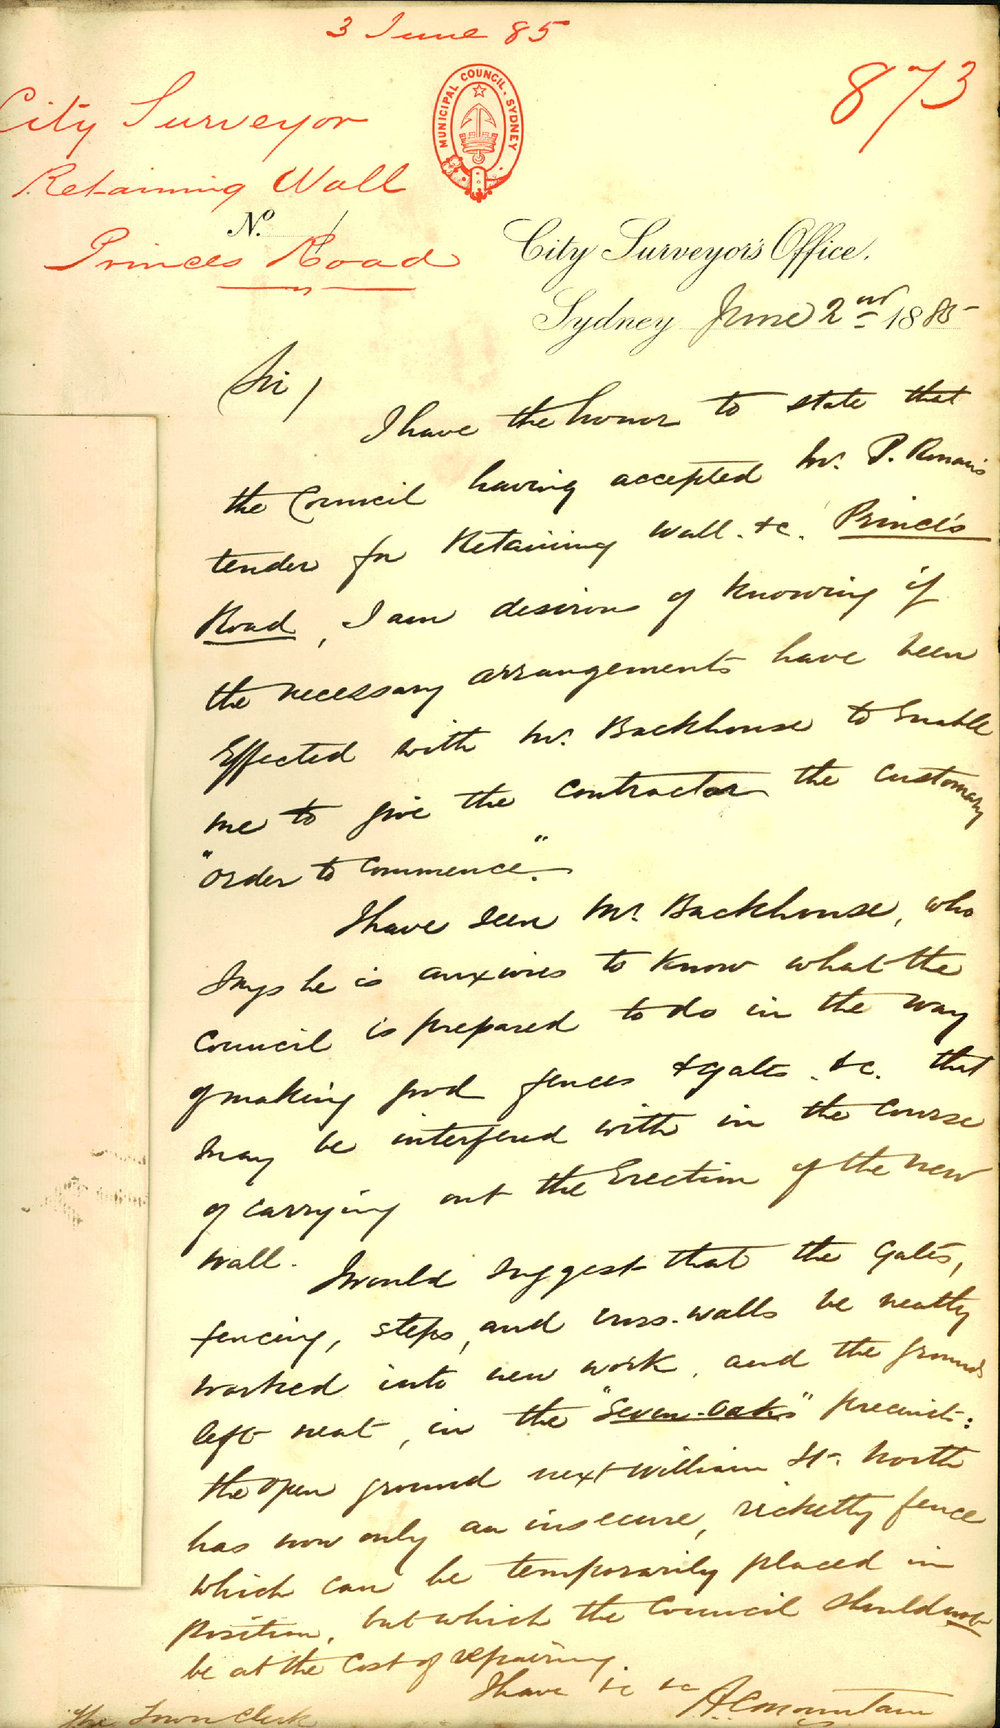 3 June 85
873
City Surveyor
Retaining Wall
Princes Road
MUNICIPAL COUNCIL · SYDNEY
No. 1
City Surveyor's Office.
Sydney June 2nd 1885
Sir,
I have the honor to state that
the Council having accepted Mr. P. Ronan's
tender for Retaining Wall &c. Prince's
Road, I am desirous of knowing if
the necessary arrangements have been
effected with Mr. Backhouse to enable
me to give the contractor the customary
"order to commence".
I have seen Mr. Backhouse, who
says he is anxious to know what the
Council is prepared to do in the way
of making good fences & gates &c. that
may be interfered with in the course
of carrying out the erection of the new
wall.
I would suggest that the gates,
fencing, steps, and cross-walls be neatly
worked into new work, and the grounds
left neat, in the "Seven-Oaks" precinct:
the open ground next William St. North
has now only an insecure, ricketty fence
which can be temporarily placed in
position, but which the Council should not
be at the cost of repairing.
I have &c &c
A C Mountain
The Town Clerk